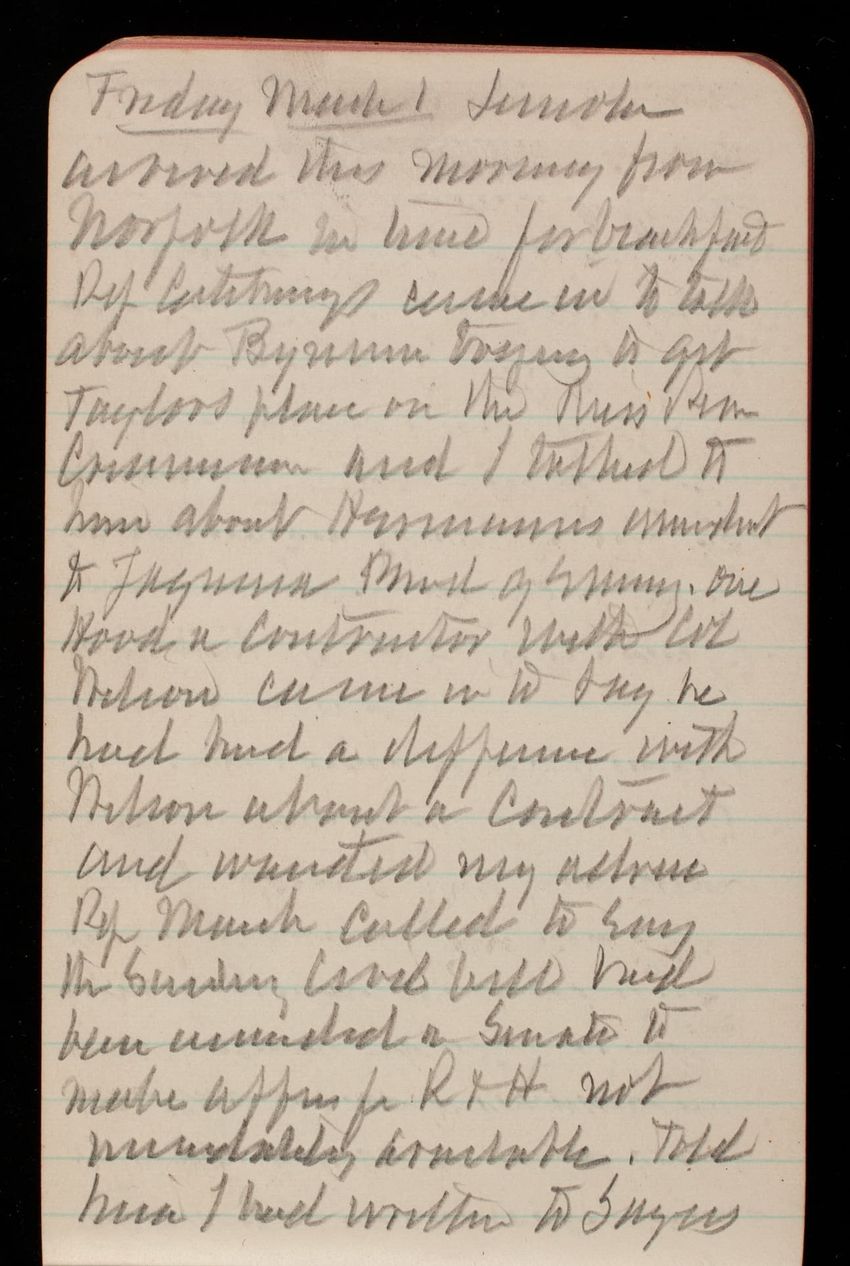 Friday March 1
arrived this morning from
Norfolk in time for breakfast
Rep Catchings came in to talk
about Bynum trying to get
Taylors place on the Miss River
Commission and I talked to
him about amendmt
to Board of one
Hood a Contractor with Col
Nelson came in to say he
had had a difference with
Nelson about a Contract
and wanted my advice
Rep called to say
the Sundry Civil bill had
been amended in Senate to
make approp for R & H not
immediately available. Told
him I had written to Sayers